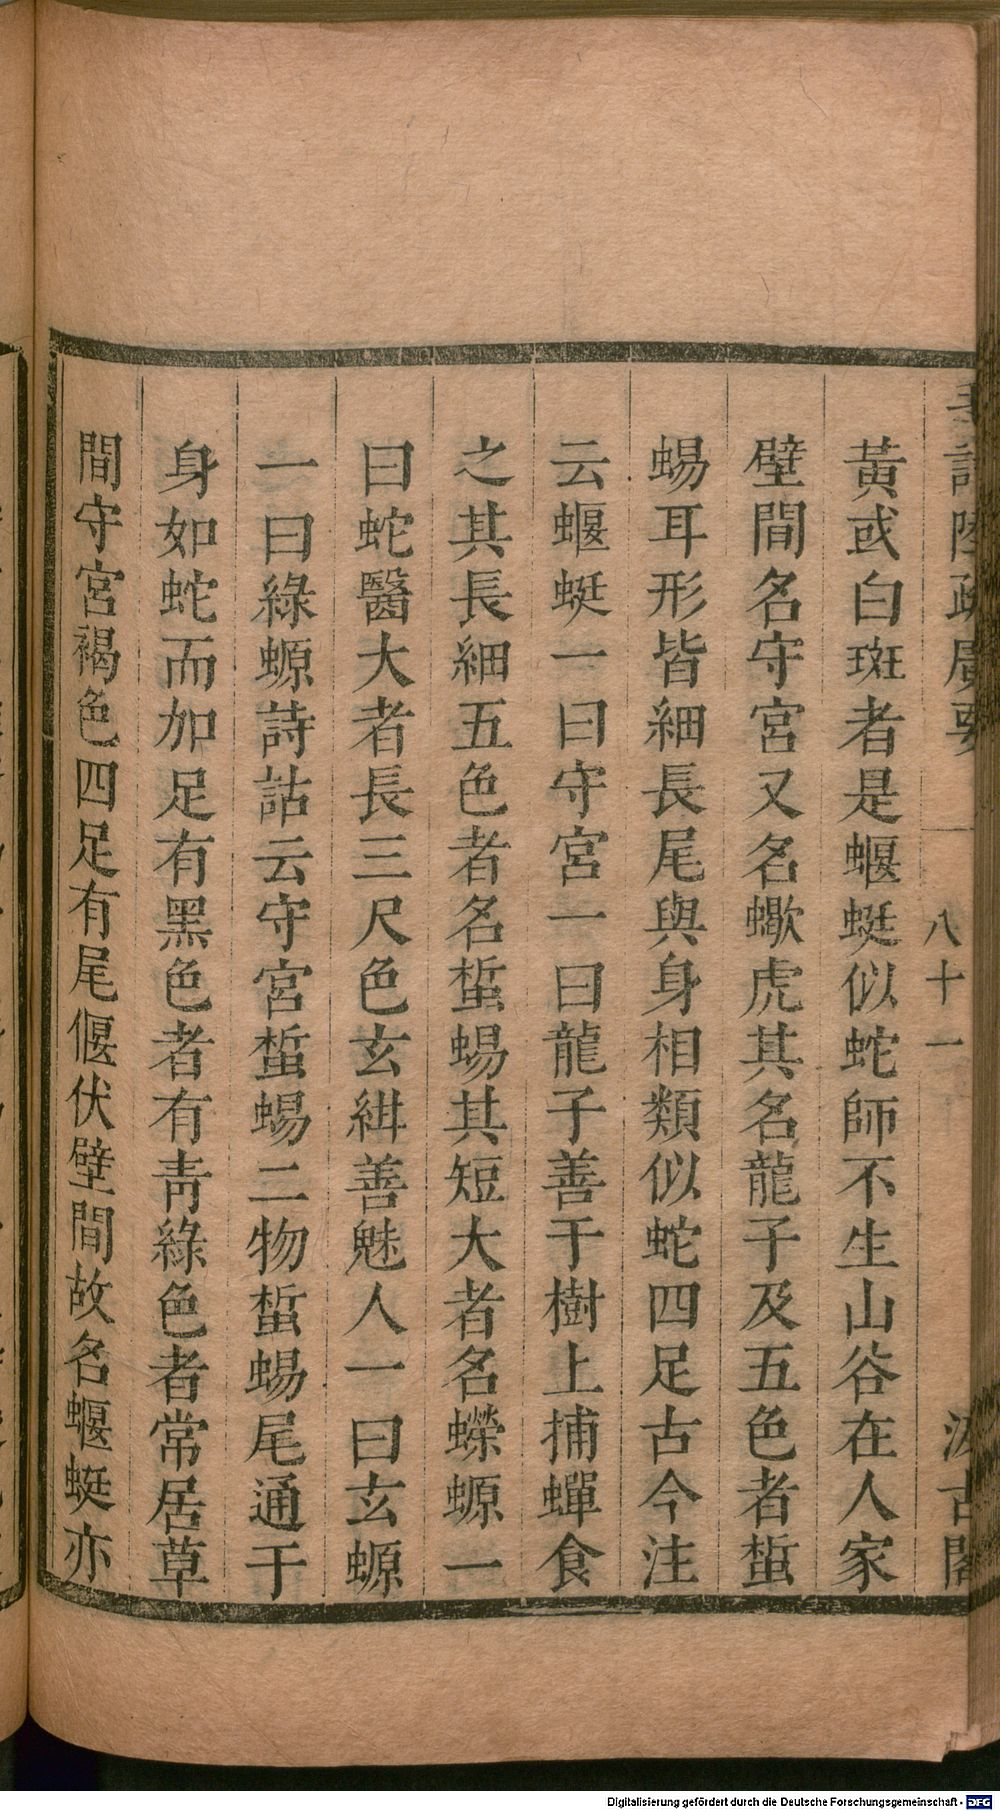 黃或白斑者是蝘蜓似蛇師不生山谷在人家
壁間名守宮又名蠍虎其名龍子及五色者蜤
蜴耳形皆細長尾與身相類似蛇四足古今注
云蝘蜓一曰守宮一曰龍子善于樹上捕蟬食
之其長細五色者名蜤蜴其短大者名蠑螈一
曰蛇醫大者長三尺色玄紺善魅人一曰玄螈
一曰綠螈詩詁云守宮蜤蜴二物蜤蜴尾通于
身如蛇而加足有黑色者有靑綠色者常居草
間守宮褐色四足有尾偃伏壁間故名蝘蜓亦
詩陸疏廣要
八十一
汲古閣
Digitalisierung gefördert durch die Deutsche Forschungsgemeinschaft - DFG